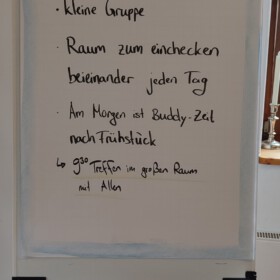 · kleine Gruppe
· Raum zum einchecken
beieinander jeden Tag
· Am Morgen ist Buddy-Zeit
nach Frühstück
↳ 9³⁰ Treffen im großen Raum
mit Allen